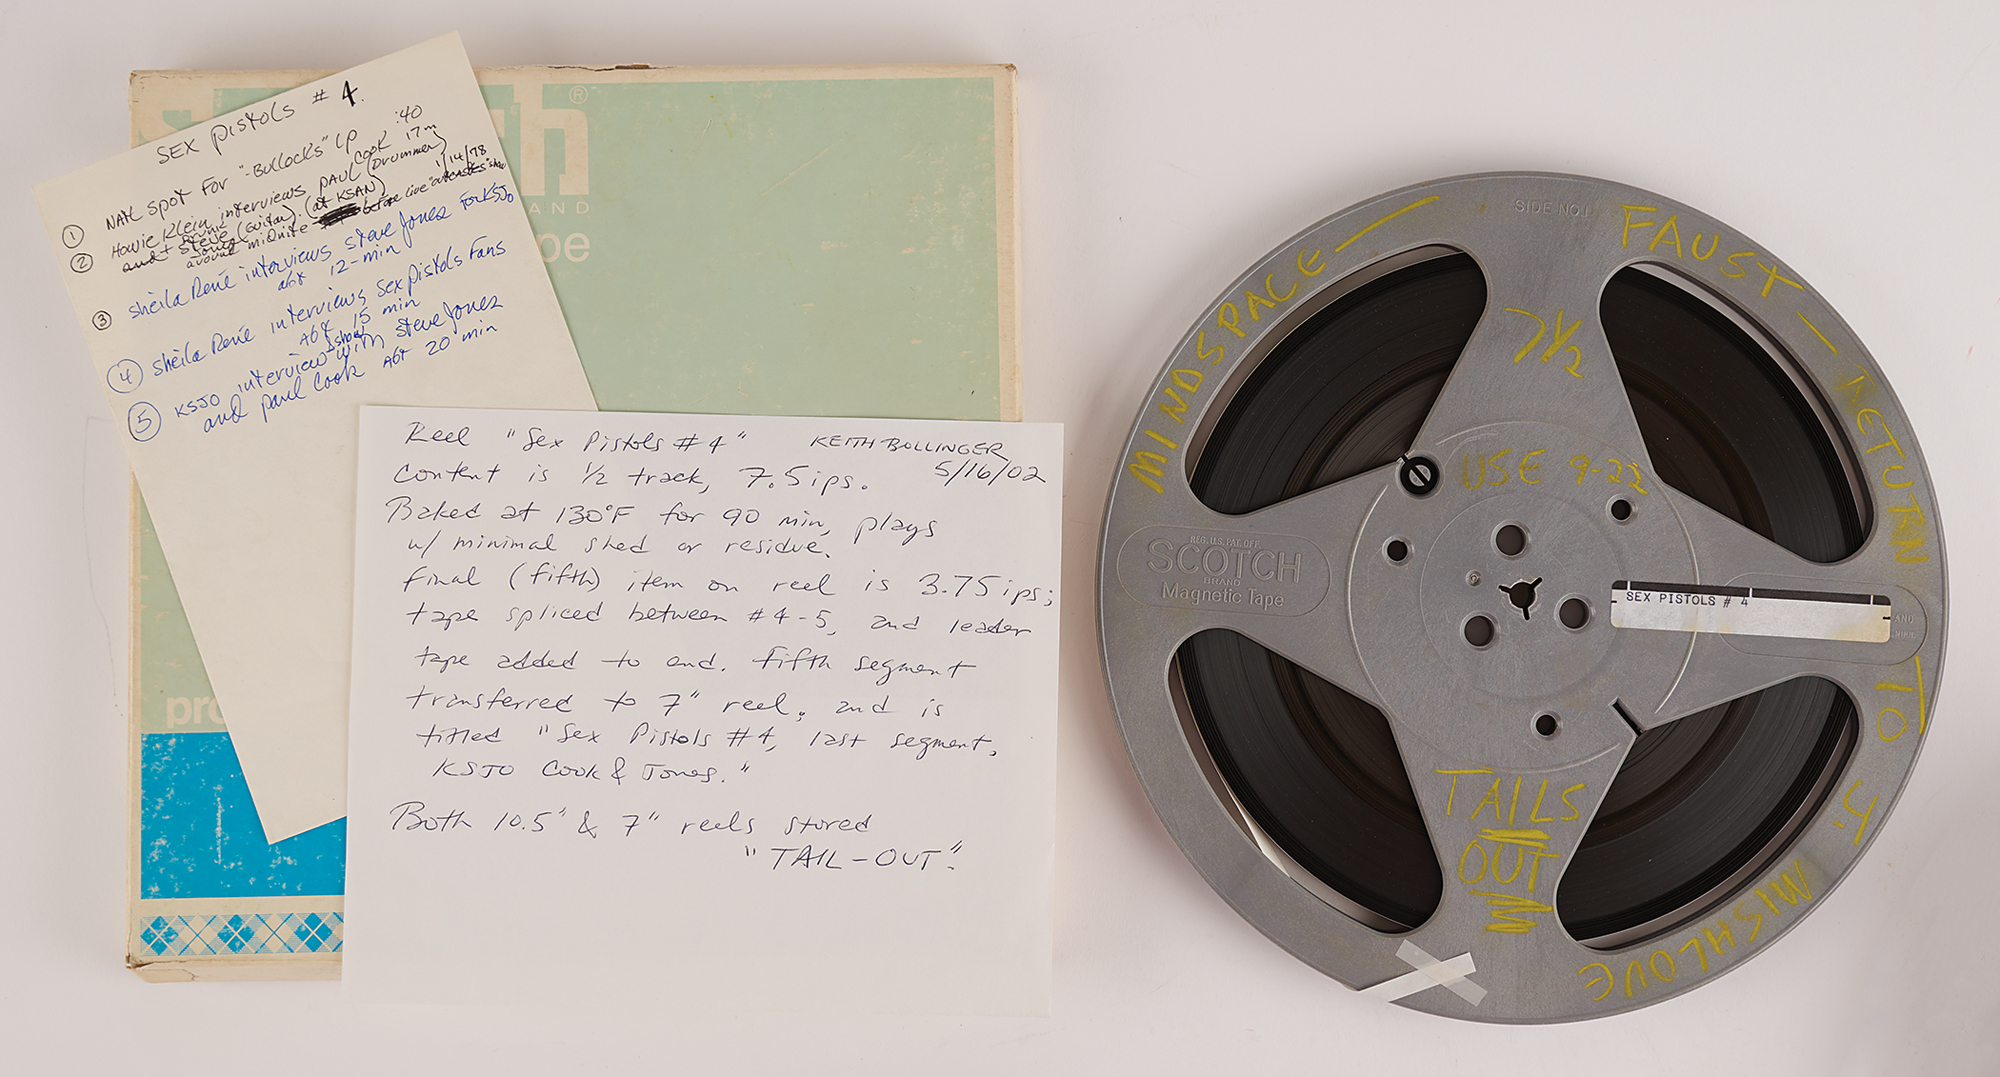 SEX PISTOLS # 4.
① NATL SPOT FOR "-BULLOCKS" LP :40
② HOWIE KLEIN interviews PAUL COOK 17m
and + STEVE (guitar). (at KSAN) (DRUMMER)
JONES around midnite before live "outcastes" show 1/14/78
③ Sheila René interviews Steve Jones FOR KSJO
abt 12-min
④ Sheila René interviews Sex Pistols Fans
Abt 15 min
⑤ KSJO interview with Steve Jones
and Paul Cook Abt 20 min
®
h
AND
pe
pro
Reel "Sex Pistols #4" KEITH BOLLINGER
Content is ½ track, 7.5 ips. 5/16/02
Baked at 130°F for 90 min, plays
w/ minimal shed or residue.
Final (fifth) item on reel is 3.75 ips;
tape spliced between #4-5, and leader
tape added to end. Fifth segment
transferred to 7" reel, and is
titled "Sex Pistols #4, last segment,
KSJO Cook & Jones."
Both 10.5" & 7" reels stored
"TAIL-OUT".
SIDE NO.1
MINDSPACE — FAUST — RETURN TO J. MISHLOVE
7½
USE 9-22
REG. U.S. PAT. OFF.
SCOTCH
BRAND
Magnetic Tape
SEX PISTOLS # 4
TAILS
OUT